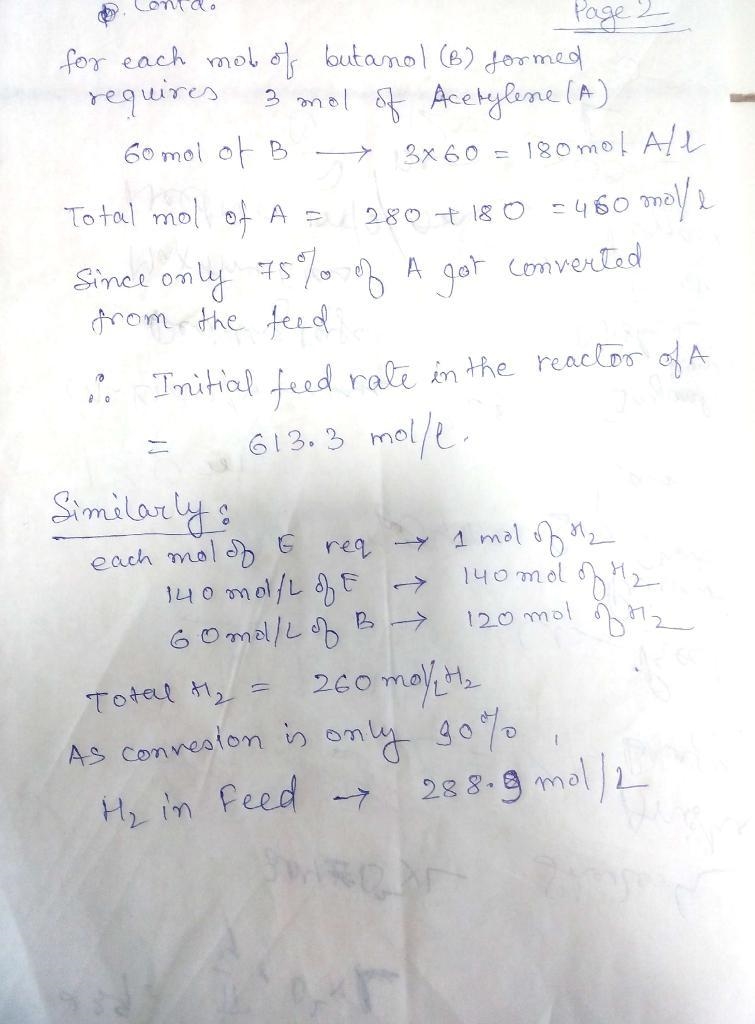 Contd.
Page 2
for each mol of butanol (B) formed
requires 3 mol of Acetylene (A)
60 mol of B → 3x60 = 180 mol A/l
Total mol of A = 280 + 180 = 460 mol/l
Since only 75% of A got converted
from the feed
∴ Initial feed rate in the reactor of A
= 613.3 mol/l.
Similarly:
each mol of E req → 1 mol of H2
140 mol/L of E → 140 mol of H2
60 mol/L of B → 120 mol of H2
Total H2 = 260 mol/L H2
As conversion is only 90%,
H2 in Feed → 288.9 mol/L